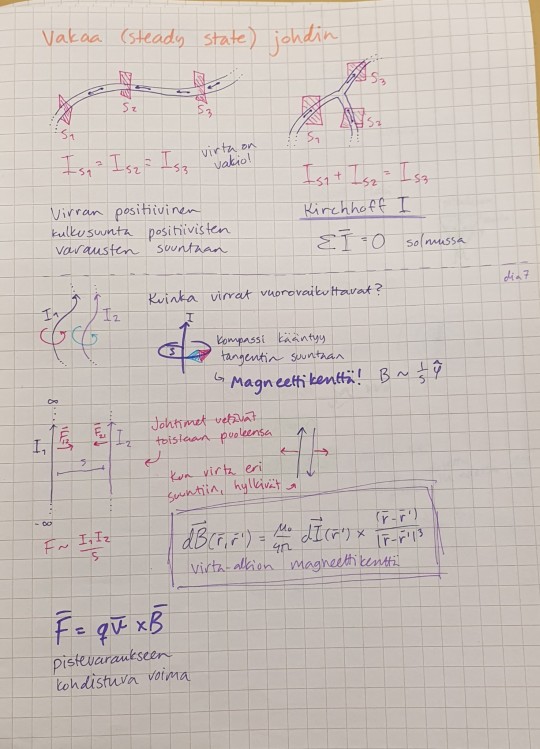 Vakaa (steady state) johdin
S1
S2
S3
S1
S2
S3
I_S1 = I_S2 = I_S3
virta on
vakio!
I_S1 + I_S2 = I_S3
Virran positiivinen
kulkusuunta positiivisten
varausten suuntaan
Kirchhoff I
ΣĪ = 0 solmussa
dia 7
Kuinka virrat vuorovaikuttavat?
I1
I2
I
s
Kompassi kääntyy
tangentin suuntaan
↳ Magneettikenttä! B ~ 1/s φ̂
∞
I1
F̄12
F̄21
I2
s
-∞
Johtimet vetävät
toisiaan puoleensa
Kun virta eri
suuntiin, hylkivät
F ~ I1I2/s
dB̄(r̄,r̄') = μ0/4π dĪ(r̄') × (r̄-r̄')/|r̄-r̄'|³
virta-alkion magneettikenttä
F̄ = qv̄ × B̄
pistevaraukseen
kohdistuva voima